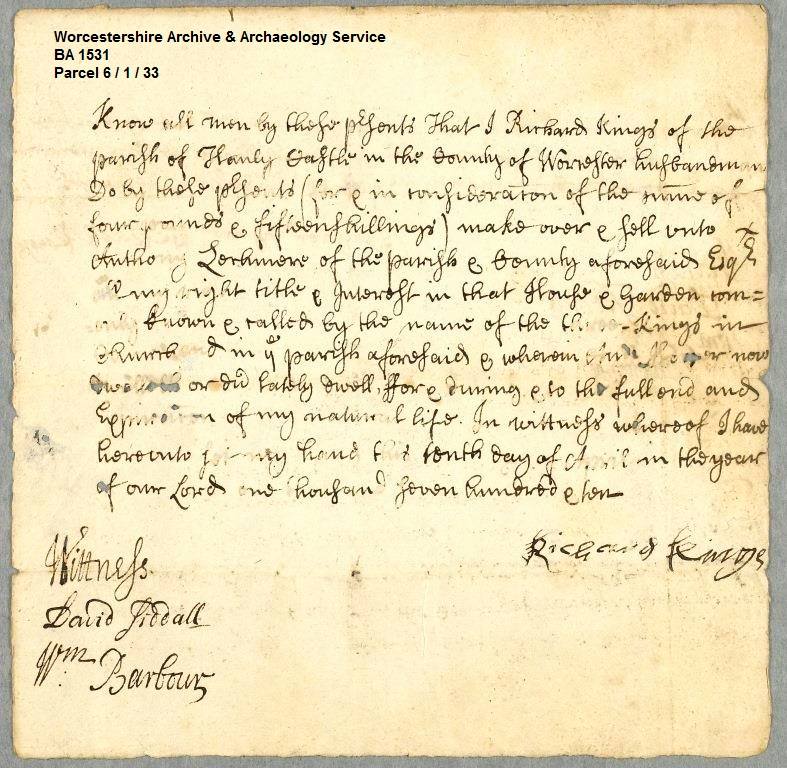 Worcestershire Archive & Archaeology Service
BA 1531
Parcel 6 / 1 / 33
Know all men by these p'sents That I Richard Kings of the
parish of Hanly Castle in the County of Worcester husbandman
Do by these p'sents (for & in consideracon of the sume of
four pounds & fifteen shillings) make over & sell unto
Lechmere of the parish & County aforesaid Esqr
my right title & Interest in that House & Garden com=
known & called by the name of the Kings in
in ye parish aforesaid & wherein now
or did lately dwell, ffor & during & to the full end and
of my natural life. In wittness whereof I have
hereunto set my hand this tenth day of April in the year
of our Lord one thousand seven hundred & ten
Richard Kings
Wittness
David Siddall
Wm. Barbour